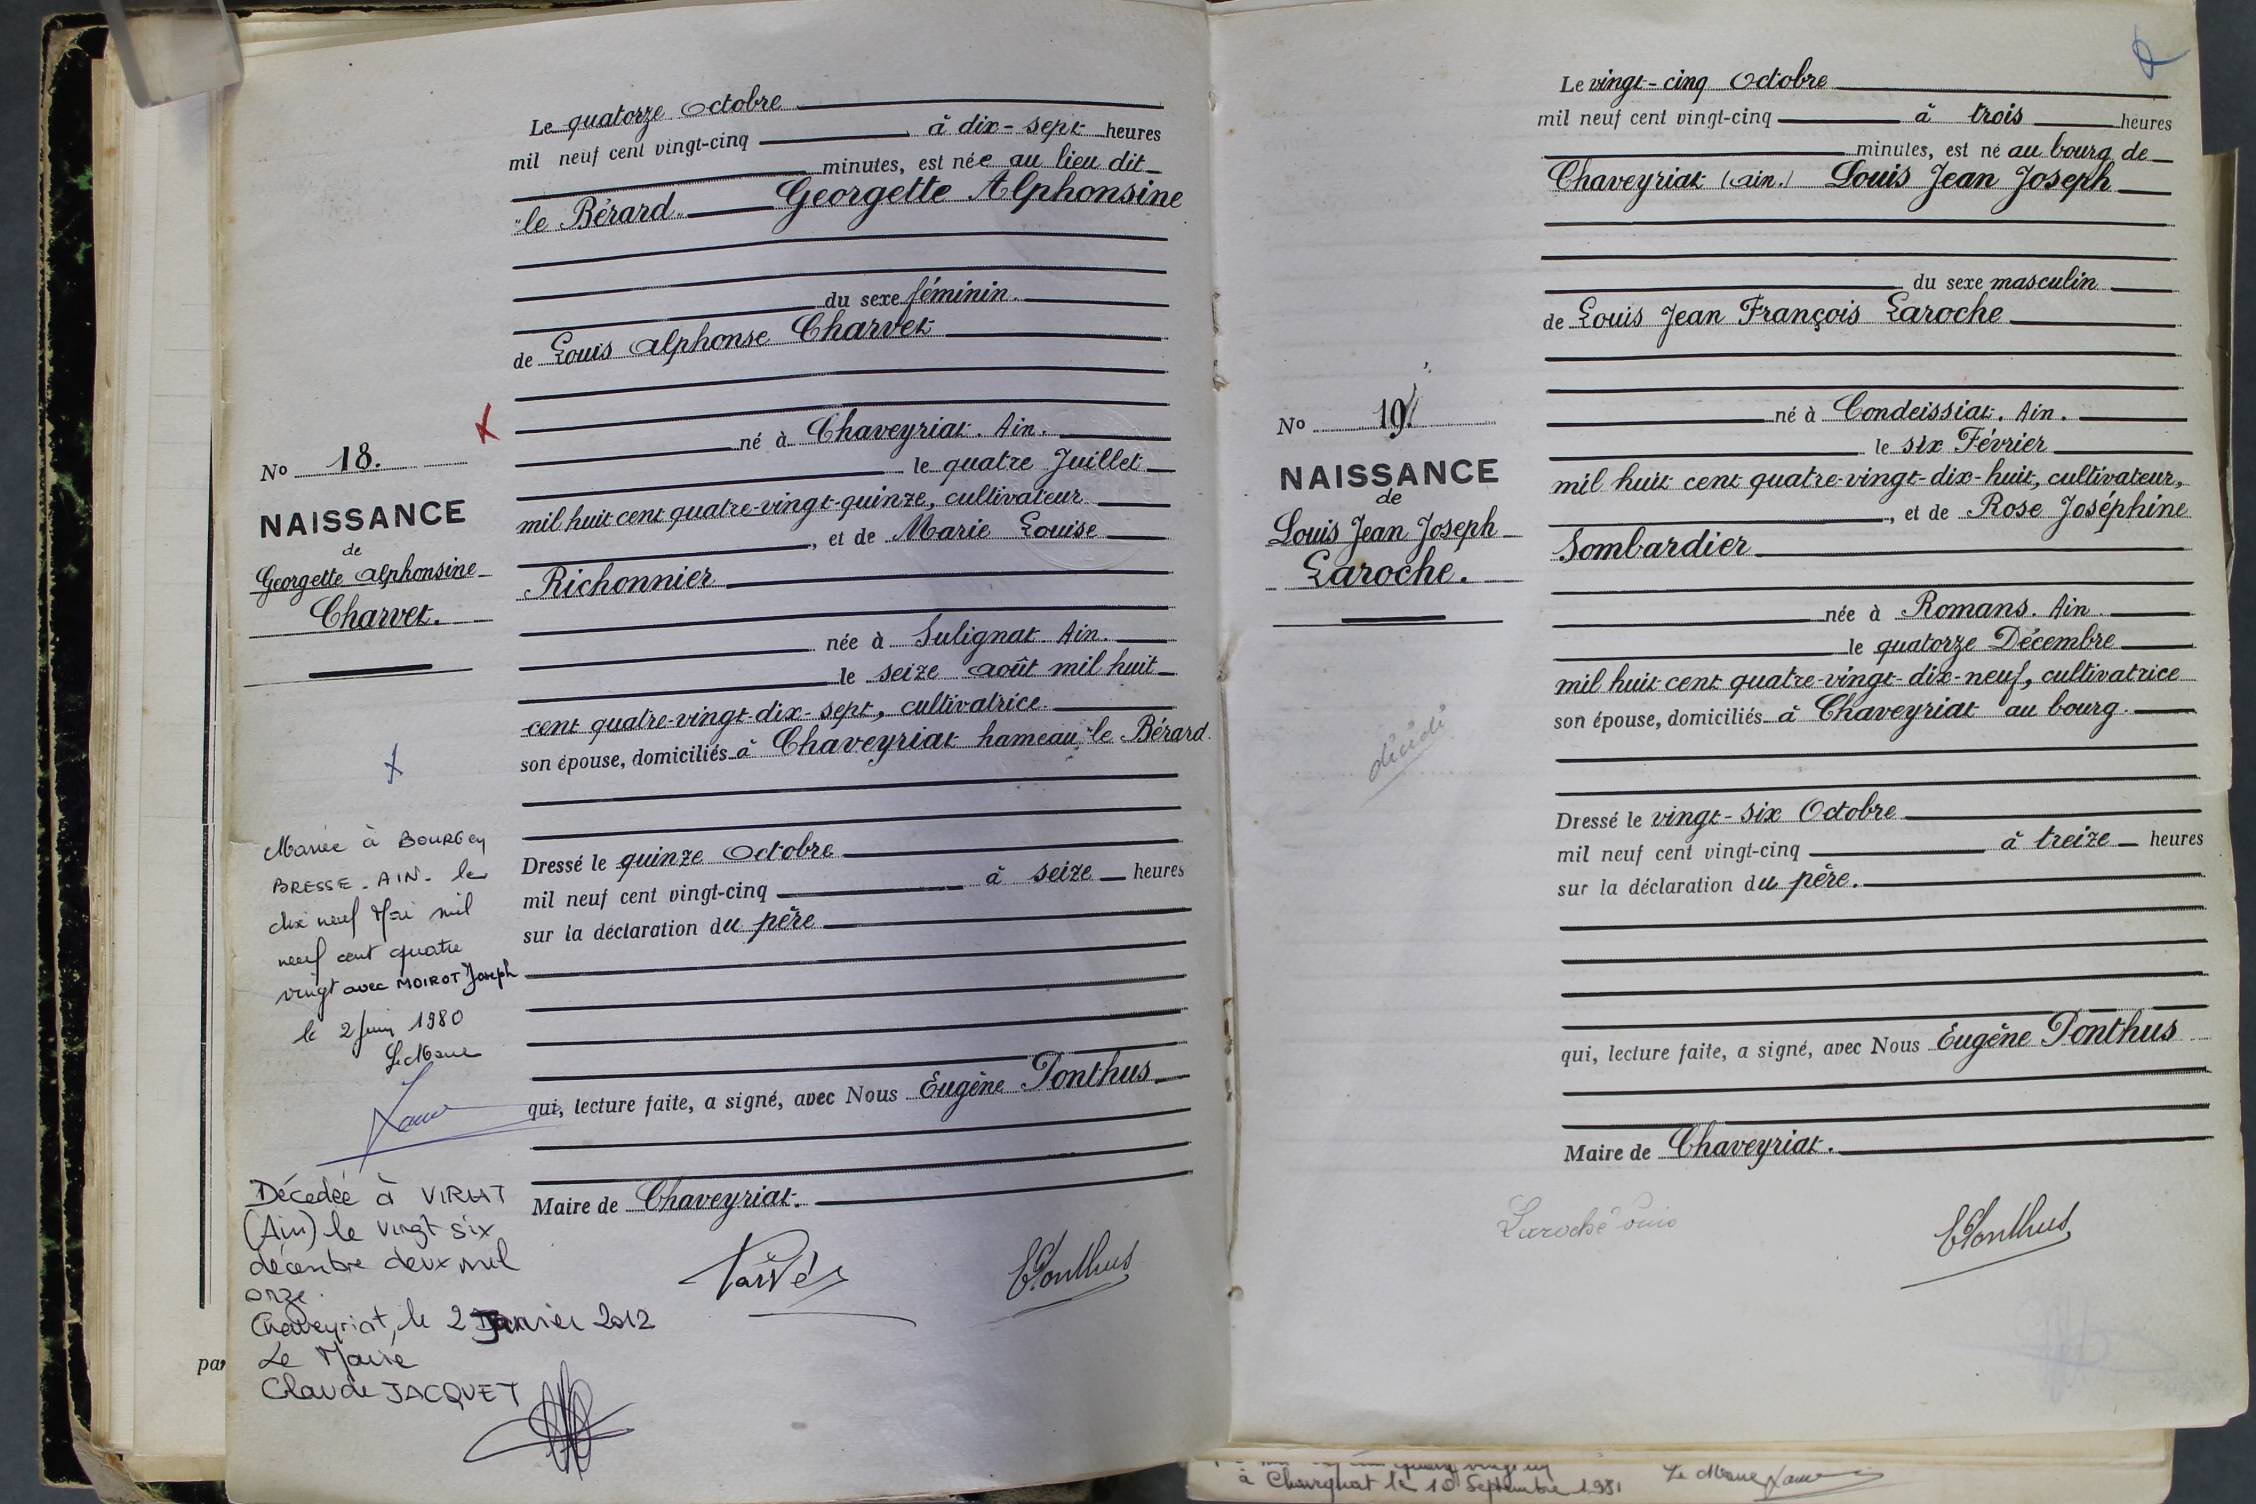 Le quatorze Octobre
mil neuf cent vingt-cinq à dix-sept heures
minutes, est née au lieu dit
"le Bérard" Georgette Alphonsine
du sexe féminin.
de Louis Alphonse Charvet
né à Chaveyriat. Ain.
le quatre Juillet
mil huit cent quatre-vingt-quinze, cultivateur
, et de Marie Louise
Richonnier
née à Sulignat Ain.
le seize août mil huit
cent quatre-vingt-dix-sept, cultivatrice.
son épouse, domiciliés à Chaveyriat hameau "le Bérard.
Dressé le quinze Octobre
mil neuf cent vingt-cinq à seize heures
sur la déclaration du père
qui, lecture faite, a signé, avec Nous Eugène Ponthus
Maire de Chaveyriat.
EPonthus
No 18.
NAISSANCE
de
Georgette Alphonsine
Charvet.
Mariée à BOURG en
BRESSE - AIN - le
dix neuf Mai mil
neuf cent quatre
vingt avec MOIROT Joseph
le 2 Juin 1980
Le Maire
Décedée à VIRIAT
(Ain) le vingt six
décembre deux mil
onze.
Chaveyriat, le 2 Janvier 2012
Le Maire
Claude JACQUET
par
Le vingt-cinq Octobre
mil neuf cent vingt-cinq à trois heures
minutes, est né au bourg de
Chaveyriat (Ain.) Louis Jean Joseph
du sexe masculin
de Louis Jean François Laroche
né à Condeissiat. Ain.
le six Février
mil huit cent quatre-vingt-dix-huit, cultivateur,
, et de Rose Joséphine
Sombardier
née à Romans. Ain
le quatorze Décembre
mil huit cent quatre-vingt-dix-neuf, cultivatrice
son épouse, domiciliés à Chaveyriat au bourg.
Dressé le vingt-six Octobre
mil neuf cent vingt-cinq à treize heures
sur la déclaration du père.
qui, lecture faite, a signé, avec Nous Eugène Ponthus
Maire de Chaveyriat.
Laroche Louis
EPonthus
No 19
NAISSANCE
de
Louis Jean Joseph
Laroche.
décédé
le 10 Septembre 1981 Le Maire